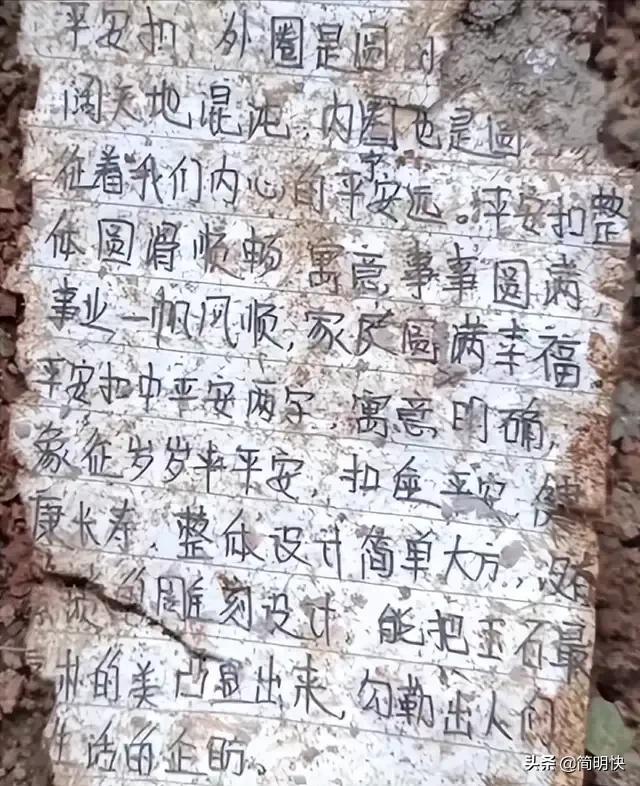 平安扣 外圈是圆
阔天地混沌,内圈也是圆
征着我们内心的平安宁远。平安扣整
体圆滑顺畅 寓意事事圆满,
事业一帆风顺,家庭圆满幸福。
平安扣中平安两字,寓意明确,
象征岁岁年平安,扣座平安,健
康长寿,整体设计简单大方,没
的雕刻设计 能把玉石最
的美凸显出来,勾勒出人们
生活的企盼。
头条@简明快